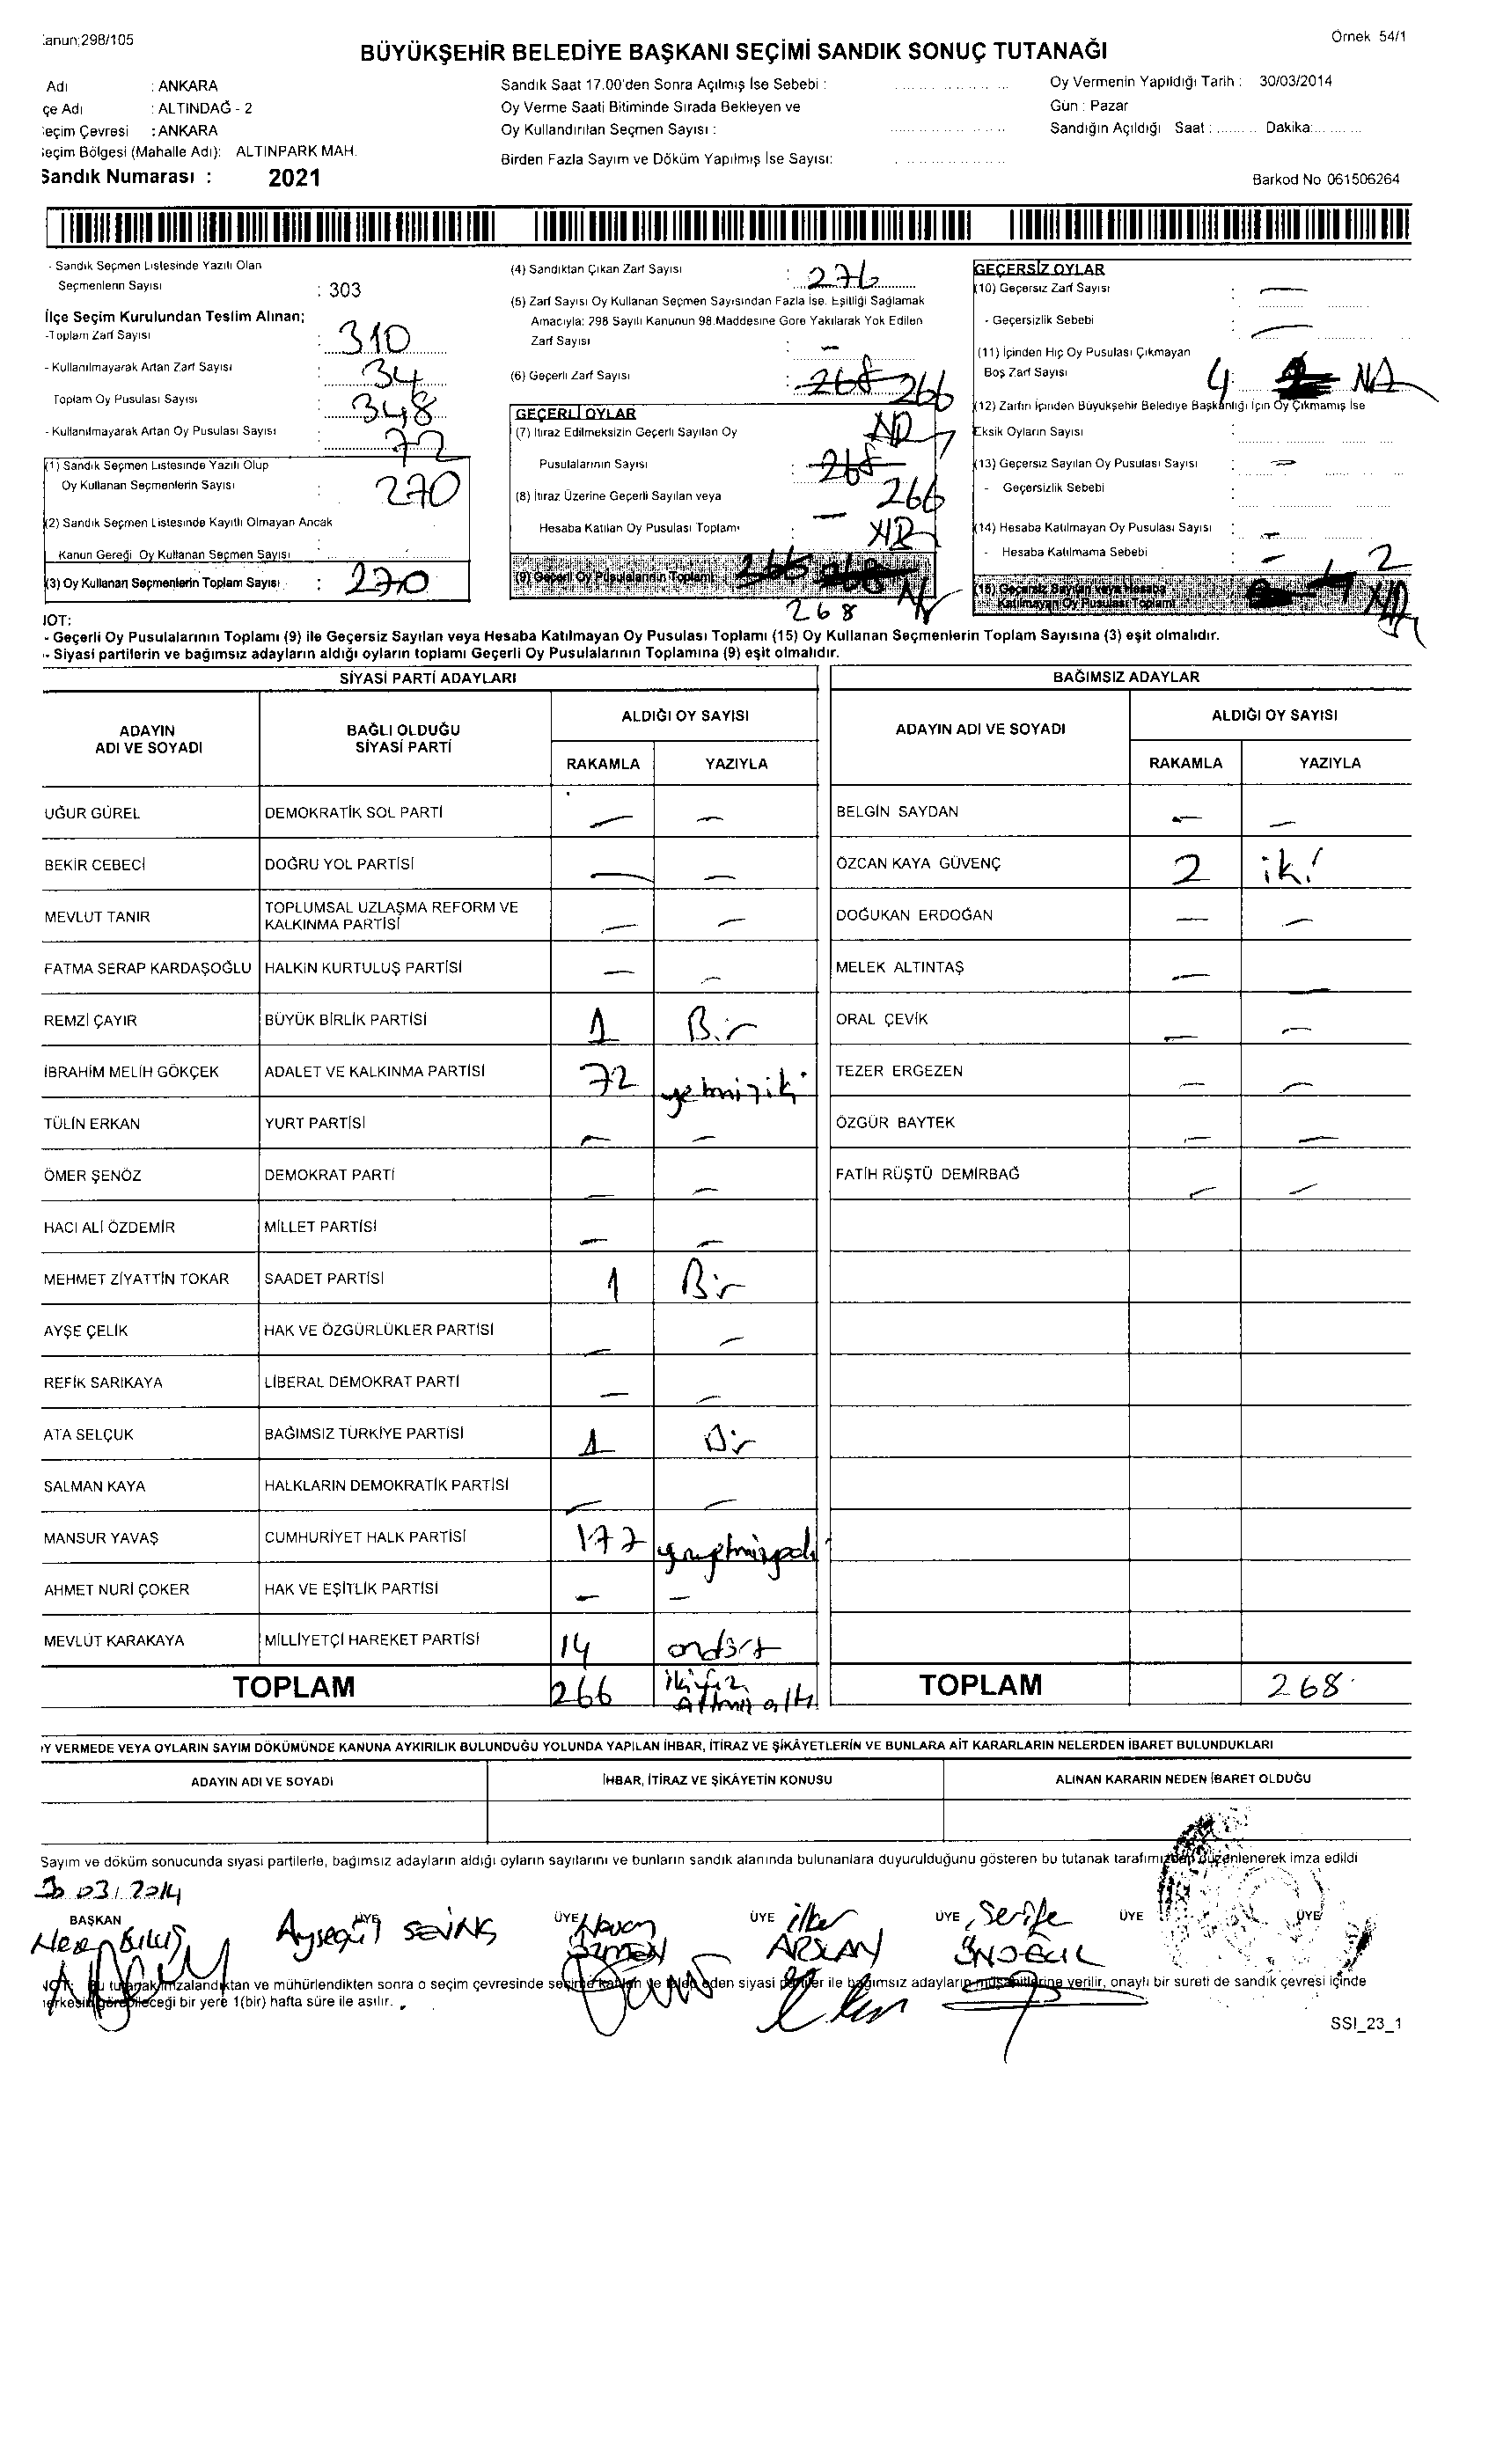 :anun;298/105
Örnek 54/1
BÜYÜKŞEHİR BELEDİYE BAŞKANI SEÇİMİ SANDIK SONUÇ TUTANAĞI
Adı : ANKARA
çe Adı : ALTINDAĞ - 2
eçim Çevresi : ANKARA
eçim Bölgesi (Mahalle Adı): ALTINPARK MAH.
Sandık Numarası : 2021
Sandık Saat 17.00'den Sonra Açılmış İse Sebebi :
Oy Verme Saati Bitiminde Sırada Bekleyen ve
Oy Kullandırılan Seçmen Sayısı :
Birden Fazla Sayım ve Döküm Yapılmış İse Sayısı:
Oy Vermenin Yapıldığı Tarih : 30/03/2014
Gün : Pazar
Sandığın Açıldığı Saat : Dakika:
Barkod No 061506264
- Sandık Seçmen Listesinde Yazılı Olan
Seçmenlerin Sayısı : 303
İlçe Seçim Kurulundan Teslim Alınan;
-Toplam Zarf Sayısı : 310
- Kullanılmayarak Artan Zarf Sayısı : 34
Toplam Oy Pusulası Sayısı : 348
- Kullanılmayarak Artan Oy Pusulası Sayısı : 72
(1) Sandık Seçmen Listesinde Yazılı Olup
Oy Kullanan Seçmenlerin Sayısı : 270
(2) Sandık Seçmen Listesinde Kayıtlı Olmayan Ancak
Kanun Gereği Oy Kullanan Seçmen Sayısı :
(3) Oy Kullanan Seçmenlerin Toplam Sayısı : 270
(4) Sandıktan Çıkan Zarf Sayısı : 276
(5) Zarf Sayısı Oy Kullanan Seçmen Sayısından Fazla İse, Eşitliği Sağlamak
Amacıyla; 298 Sayılı Kanunun 98.Maddesine Göre Yakılarak Yok Edilen
Zarf Sayısı : -
(6) Geçerli Zarf Sayısı : 268 266
GEÇERLİ OYLAR
(7) İtiraz Edilmeksizin Geçerli Sayılan Oy
Pusulalarının Sayısı : 268 266
(8) İtiraz Üzerine Geçerli Sayılan veya
Hesaba Katılan Oy Pusulası Toplamı : -
(9) Geçerli Oy Pusulalarının Toplamı : 266 268
268
GEÇERSİZ OYLAR
(10) Geçersiz Zarf Sayısı : -
- Geçersizlik Sebebi : -
(11) İçinden Hiç Oy Pusulası Çıkmayan
Boş Zarf Sayısı : 4
(12) Zarfın İçinden Büyükşehir Belediye Başkanlığı İçin Oy Çıkmamış İse
Eksik Oyların Sayısı :
(13) Geçersiz Sayılan Oy Pusulası Sayısı : -
- Geçersizlik Sebebi :
(14) Hesaba Katılmayan Oy Pusulası Sayısı : -
- Hesaba Katılmama Sebebi : -
(15) Geçersiz Sayılan veya Hesaba
Katılmayan Oy Pusulası Toplamı 2
NOT:
- Geçerli Oy Pusulalarının Toplamı (9) ile Geçersiz Sayılan veya Hesaba Katılmayan Oy Pusulası Toplamı (15) Oy Kullanan Seçmenlerin Toplam Sayısına (3) eşit olmalıdır.
- Siyasi partilerin ve bağımsız adayların aldığı oyların toplamı Geçerli Oy Pusulalarının Toplamına (9) eşit olmalıdır.
SİYASİ PARTİ ADAYLARI
ADAYIN ADI VE SOYADI BAĞLI OLDUĞU SİYASİ PARTİ ALDIĞI OY SAYISI
RAKAMLA YAZIYLA
UĞUR GÜREL DEMOKRATİK SOL PARTİ - -
BEKİR CEBECİ DOĞRU YOL PARTİSİ - -
MEVLUT TANIR TOPLUMSAL UZLAŞMA REFORM VE KALKINMA PARTİSİ - -
FATMA SERAP KARDAŞOĞLU HALKIN KURTULUŞ PARTİSİ - -
REMZİ ÇAYIR BÜYÜK BİRLİK PARTİSİ 1 Bir
İBRAHİM MELİH GÖKÇEK ADALET VE KALKINMA PARTİSİ 72 yetmişiki
TÜLİN ERKAN YURT PARTİSİ - -
ÖMER ŞENÖZ DEMOKRAT PARTİ - -
HACI ALİ ÖZDEMİR MİLLET PARTİSİ - -
MEHMET ZİYATTİN TOKAR SAADET PARTİSİ 1 Bir
AYŞE ÇELİK HAK VE ÖZGÜRLÜKLER PARTİSİ - -
REFİK SARIKAYA LİBERAL DEMOKRAT PARTİ - -
ATA SELÇUK BAĞIMSIZ TÜRKİYE PARTİSİ 1 Bir
SALMAN KAYA HALKLARIN DEMOKRATİK PARTİSİ - -
MANSUR YAVAŞ CUMHURİYET HALK PARTİSİ 177
AHMET NURİ ÇOKER HAK VE EŞİTLİK PARTİSİ - -
MEVLÜT KARAKAYA MİLLİYETÇİ HAREKET PARTİSİ 14 ondört
TOPLAM 266 ikiyüz altmış altı
BAĞIMSIZ ADAYLAR
ADAYIN ADI VE SOYADI ALDIĞI OY SAYISI
RAKAMLA YAZIYLA
BELGİN SAYDAN - -
ÖZCAN KAYA GÜVENÇ 2 iki
DOĞUKAN ERDOĞAN - -
MELEK ALTINTAŞ - -
ORAL ÇEVİK - -
TEZER ERGEZEN - -
ÖZGÜR BAYTEK - -
FATİH RÜŞTÜ DEMİRBAĞ - -
TOPLAM 268
Y VERMEDE VEYA OYLARIN SAYIM DÖKÜMÜNDE KANUNA AYKIRILIK BULUNDUĞU YOLUNDA YAPILAN İHBAR, İTİRAZ VE ŞİKÂYETLERİN VE BUNLARA AİT KARARLARIN NELERDEN İBARET BULUNDUKLARI
ADAYIN ADI VE SOYADI İHBAR, İTİRAZ VE ŞİKÂYETİN KONUSU ALINAN KARARIN NEDEN İBARET OLDUĞU
Sayım ve döküm sonucunda siyasi partilerle, bağımsız adayların aldığı oyların sayılarını ve bunların sandık alanında bulunanlara duyurulduğunu gösteren bu tutanak tarafımızdan düzenlenerek imza edildi
30.03.2014
BAŞKAN ÜYE ÜYE ÜYE ÜYE ÜYE ÜYE
Ayşegül SEVİNÇ
ilker ARSLAN
Şerife
NOT: Bu tutanak imzalandıktan ve mühürlendikten sonra o seçim çevresinde seçime katılan ve talep eden siyasi partiler ile bağımsız adayların müşahitlerine verilir, onaylı bir sureti de sandık çevresi içinde
herkesin görebileceği bir yere 1(bir) hafta süre ile asılır.
SSI_23_1